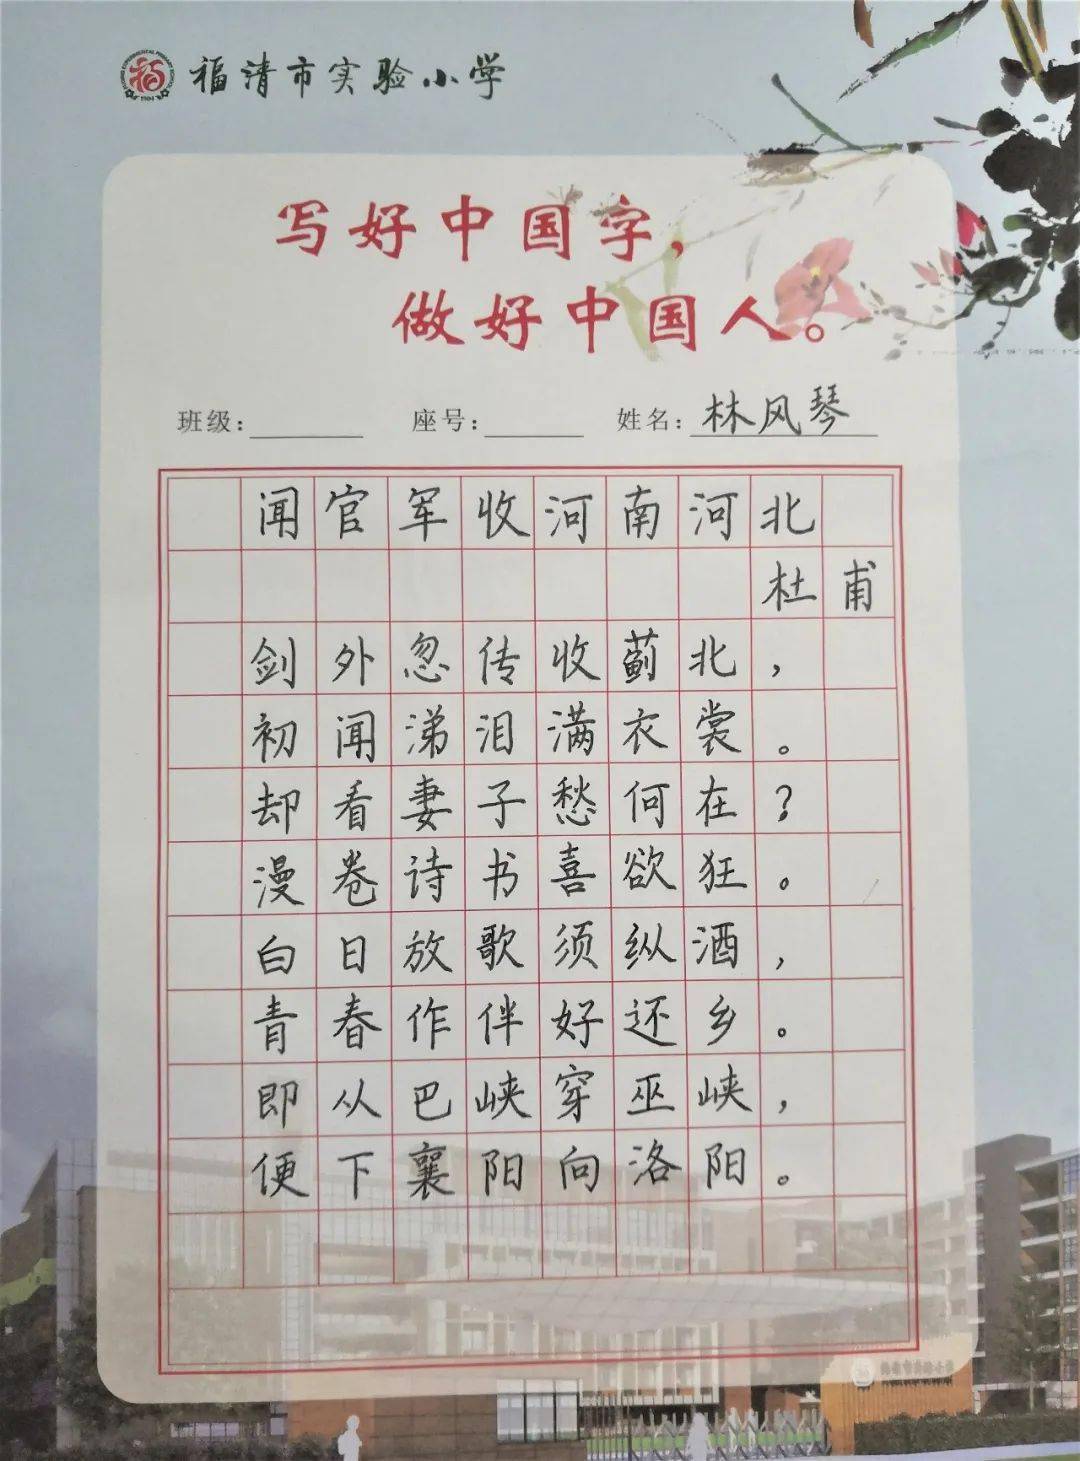 福清市实验小学
写好中国字，
做好中国人。
班级： 座号： 姓名：林风琴
闻官军收河南河北
杜甫
剑外忽传收蓟北，
初闻涕泪满衣裳。
却看妻子愁何在？
漫卷诗书喜欲狂。
白日放歌须纵酒，
青春作伴好还乡。
即从巴峡穿巫峡，
便下襄阳向洛阳。